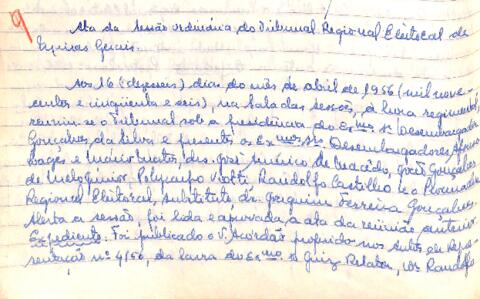 9
Ata da sessão ordinária do Tribunal Regional Eleitoral de
Minas Gerais.
Aos 16 (dezesseis) dias do mês de abril de 1956 (mil nove-
centos e cinquenta e seis), na Sala das sessões, à hora regimental,
reuniu-se o Tribunal sob a presidência do Exmo. Sr. Desembargador
Gonçalves da Silva e presentes os Exmos. Srs. Desembargadores Afonso
Lages e Márcio drs. José Américo de Macêdo, José Gonçalves
de Melo Júnior, Polycarpo Viotti, Randolfo Castilho e o Procurador
Regional Eleitoral, substituto, dr. Joaquim Ferreira Gonçalves.
Aberta a sessão, foi lida e aprovada a ata da reunião anterior.
Expediente. Foi publicado o V. Acórdão proferido nos autos de Repre-
sentação nº 4/56, da lavra do Exmo. Sr. Juiz Relator, Randolfo